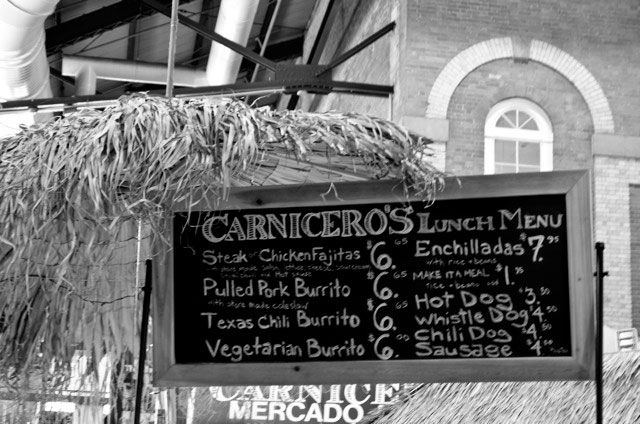 CARNICERO'S LUNCH MENU
STEAK OR CHICKEN FAJITAS $6.65
PULLED PORK BURRITO $6.65
with store made coleslaw
TEXAS CHILI BURRITO $6.
VEGETARIAN BURRITO $6.00
ENCHILLADAS $7.95
with rice & beans
MAKE IT A MEAL $1.
rice & beans
HOT DOG $3.50
WHISTLE DOG $4.50
CHILI DOG $4.50
SAUSAGE $4.50
CARNICE
MERCADO